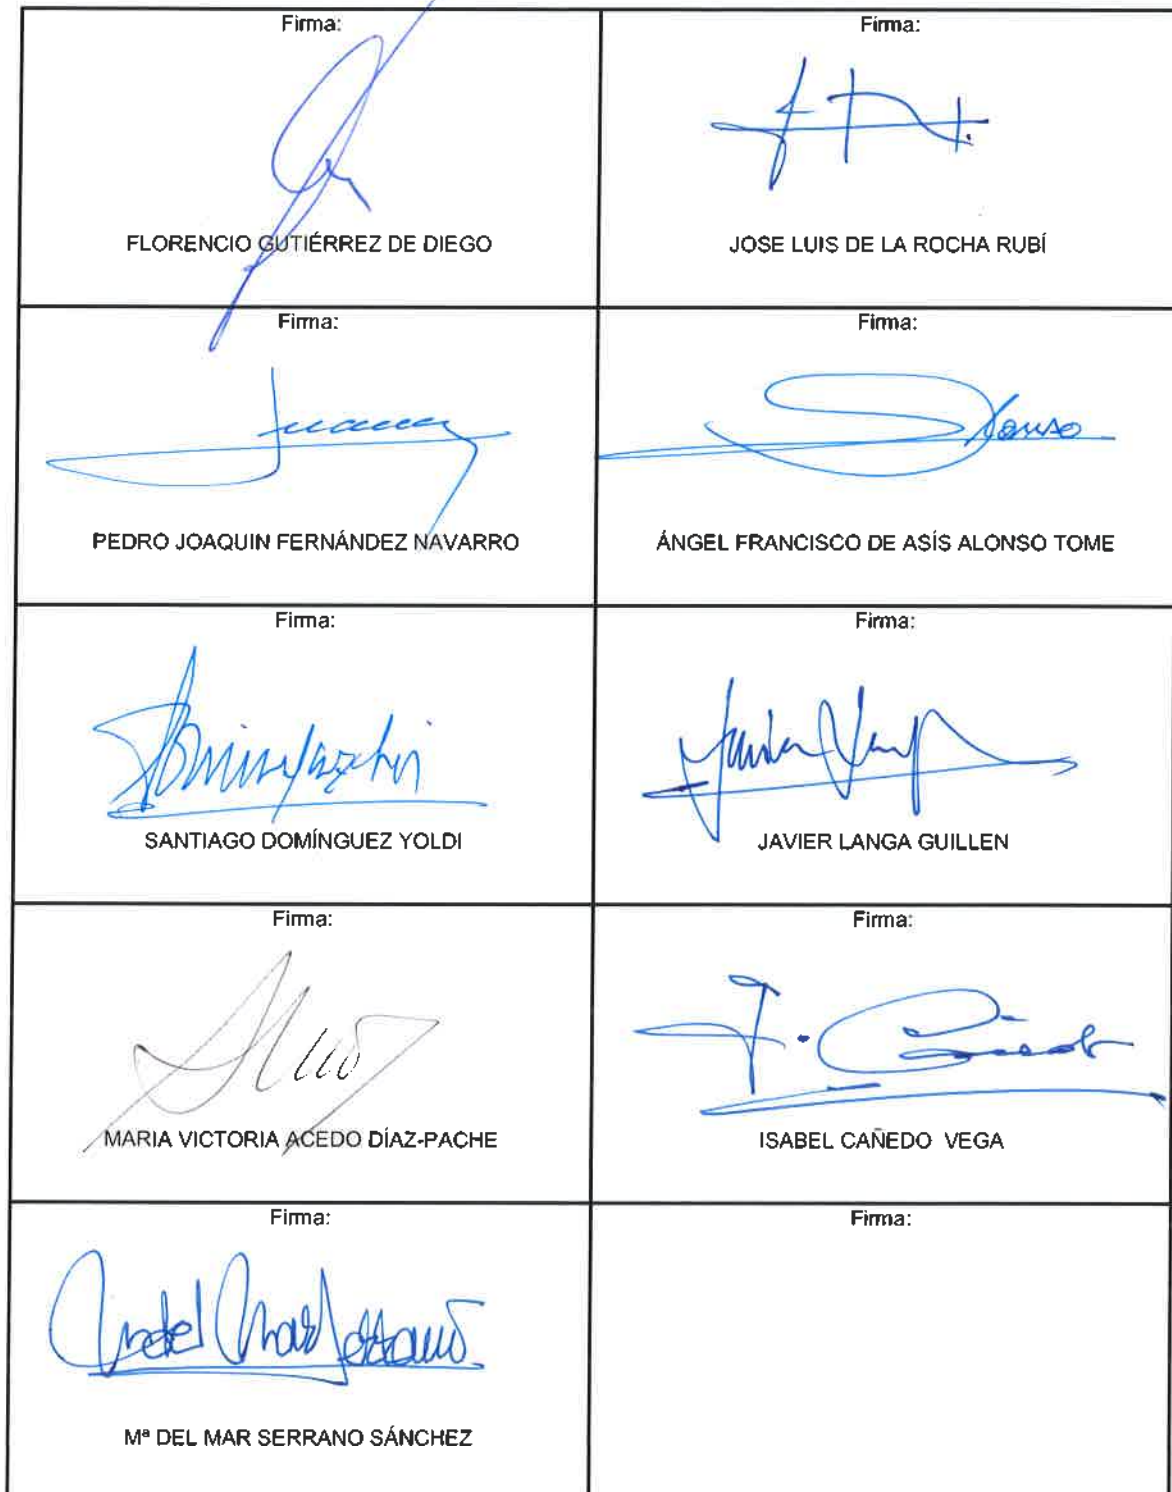 Firma:
FLORENCIO GUTIÉRREZ DE DIEGO
Firma:
JOSE LUIS DE LA ROCHA RUBÍ
Firma:
PEDRO JOAQUIN FERNÁNDEZ NAVARRO
Firma:
Alonso
ÁNGEL FRANCISCO DE ASÍS ALONSO TOME
Firma:
SANTIAGO DOMÍNGUEZ YOLDI
Firma:
Javier Lang
JAVIER LANGA GUILLEN
Firma:
MARIA VICTORIA ACEDO DÍAZ-PACHE
Firma:
I. Cañedo
ISABEL CAÑEDO VEGA
Firma:
Mª del Mar Serrano
Mª DEL MAR SERRANO SÁNCHEZ
Firma: